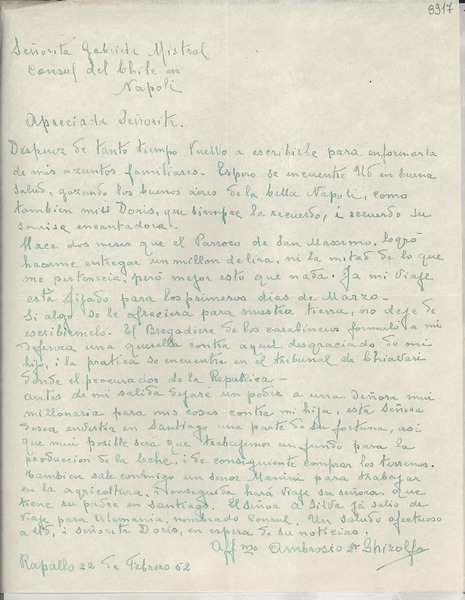 8917
Señorita Gabriela Mistral
Consul del Chile en
Napoli
Apreciada Señorita.
Despues de tanto tiempo vuelvo a escribirle para enformarla
de mis asuntos familiares. Espero se encuentre Ud en buena
salud, gozando los buenos aires de la bella Napoli, como
tambien miss Doris, que siempre la recuerdo, i recuerdo su
sonrisa encantadora.
Hace dos meses que el Parroco de San Massimo, logró
hacerme entregar un millon de lira, ni la mitad de lo que
me pertenecia, peró mejor esto que nada. Ja mi viaje
está fijado para los primeros dias de Marzo-
Si algo se le ofreciera para nuestra tierra, no deje de
escribirmelo. El Bregadiere de los carabineus formuló a mi
defenza una querella contra aquel desgraciado de mi
hijo, i la pratica se encuentra en el tribunal de Chiavari
donde el procurador de la Republica-
antes de mi salida dejaré un poder a una señora mui
millonaria para mis cosas contra mi hija, esta Señora
desea envertir en Santiago una parte de su fortuna, asi
que mui posible sera que trabajemos un fundo para la
producción de la leche, i de consiguiente comprar los terrenos.
Tambien sale conmigo un señor Manini para trabajar
en la agricoltura, i enseguida hará viaje su señora, que
tiene su padre en Santiago. El Señor a Silva já salio de
viaje para Alemania, nombrado Consul. Un saludo afectuoso
a Ud, i señorita Doris, en espera de su noticias.
Aff mo Ambrosio Ghizolfo
Rapallo 22 de Febrero 52